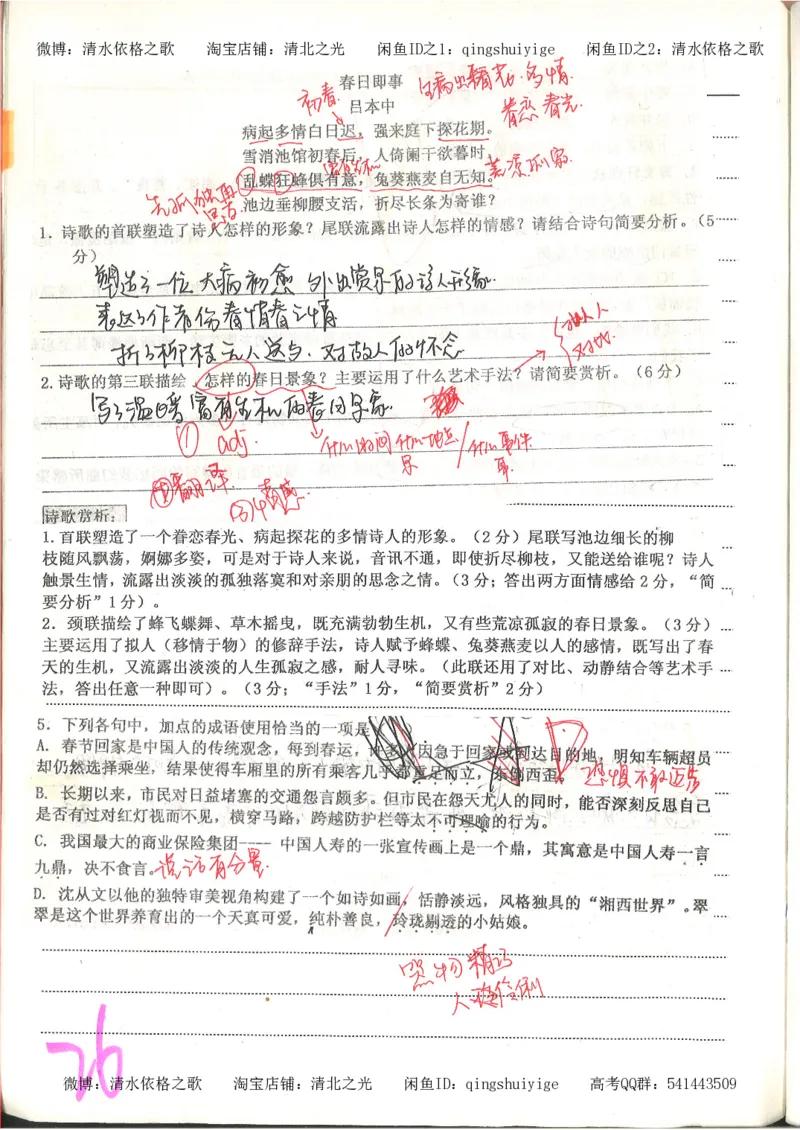 微博：清水依格之歌 淘宝店铺：清北之光 闲鱼ID之1：qingshuiyige 闲鱼ID之2：清水依格之歌
春日即事
初春
生病出看花，多情
吕本中
眷恋 春光
病起多情白日迟，强来庭下探花期。
雪消池馆初春后，人倚阑干欲暮时。
乱蝶狂蜂俱有意，兔葵燕麦自无知。
荒凉孤寂
池边垂柳腰支活，折尽长条为寄谁？
1．诗歌的首联塑造了诗人怎样的形象？尾联流露出诗人怎样的情感？请结合诗句简要分析。（5
分）
塑造了一位大病初愈 外出赏景的诗人形象
表达了作者伤春惜春之情
折了柳枝无人送与，对故人的怀念
拟人
对比
2.诗歌的第三联描绘了怎样的春日景象？主要运用了什么艺术手法？请简要赏析。（6分）
写了温暖富有生机的春日景象
① adj.
什么时间什么地点/什么事件
景
事
②翻译
③情感
诗歌赏析：
1.首联塑造了一个眷恋春光、病起探花的多情诗人的形象。（2分）尾联写池边细长的柳
枝随风飘荡，婀娜多姿，可是对于诗人来说，音讯不通，即使折尽柳枝，又能送给谁呢？诗人
触景生情，流露出淡淡的孤独落寞和对亲朋的思念之情。（3分；答出两方面情感给2分，“简
要分析”1分）。
2．颈联描绘了蜂飞蝶舞、草木摇曳，既充满勃勃生机，又有些荒凉孤寂的春日景象。（3分）
主要运用了拟人（移情于物）的修辞手法，诗人赋予蜂蝶、兔葵燕麦以人的感情，既写出了春
天的生机，又流露出淡淡的人生孤寂之感，耐人寻味。（此联还用了对比、动静结合等艺术手
法，答出任意一种即可）。（3分；“手法”1分，“简要赏析”2分）
5．下列各句中，加点的成语使用恰当的一项是
D
A．春节回家是中国人的传统观念，每到春运，许多人因急于回家或到达目的地，明知车辆超员
却仍然选择乘坐，结果使得车厢里的所有乘客几乎都重足而立，东倒西歪。
恐惧不敢迈步
B．长期以来，市民对日益堵塞的交通怨言颇多。但市民在怨天尤人的同时，能否深刻反思自己
是否有过对红灯视而不见，横穿马路，跨越防护栏等太不可理喻的行为。
C．我国最大的商业保险集团---- 中国人寿的一张宣传画上是一个鼎，其寓意是中国人寿一言
九鼎，决不食言。
说话有分量
D．沈从文以他的独特审美视角构建了一个如诗如画，恬静淡远，风格独具的“湘西世界”。翠
翠是这个世界养育出的一个天真可爱，纯朴善良，玲珑剔透的小姑娘。
器物精巧
人 伶俐
76
微博：清水依格之歌 淘宝店铺：清北之光 闲鱼ID：qingshuiyige 高考QQ群：541443509